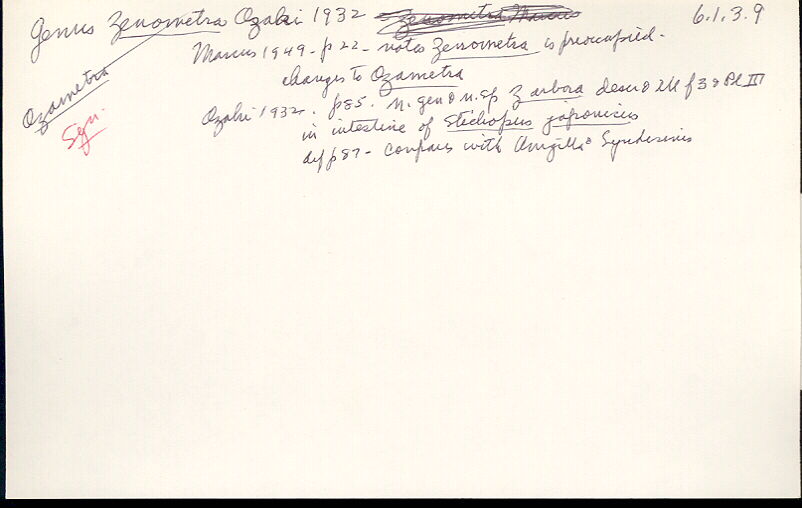 Genus Zenometra Ozaki 1932 Zenometra Marcus 6.1.3.9
Marcus 1949 - p 22 - notes Zenometra is preoccupied -
changes to Ozametra
Ozametra
Syn.
Ozaki 1932. p85. n. gen & n. sp Z arbora descr & ill f 3 & Pl III
in intestine of Stichopus japonicus
df p 87 - compares with Anoplodium & Syndesmis